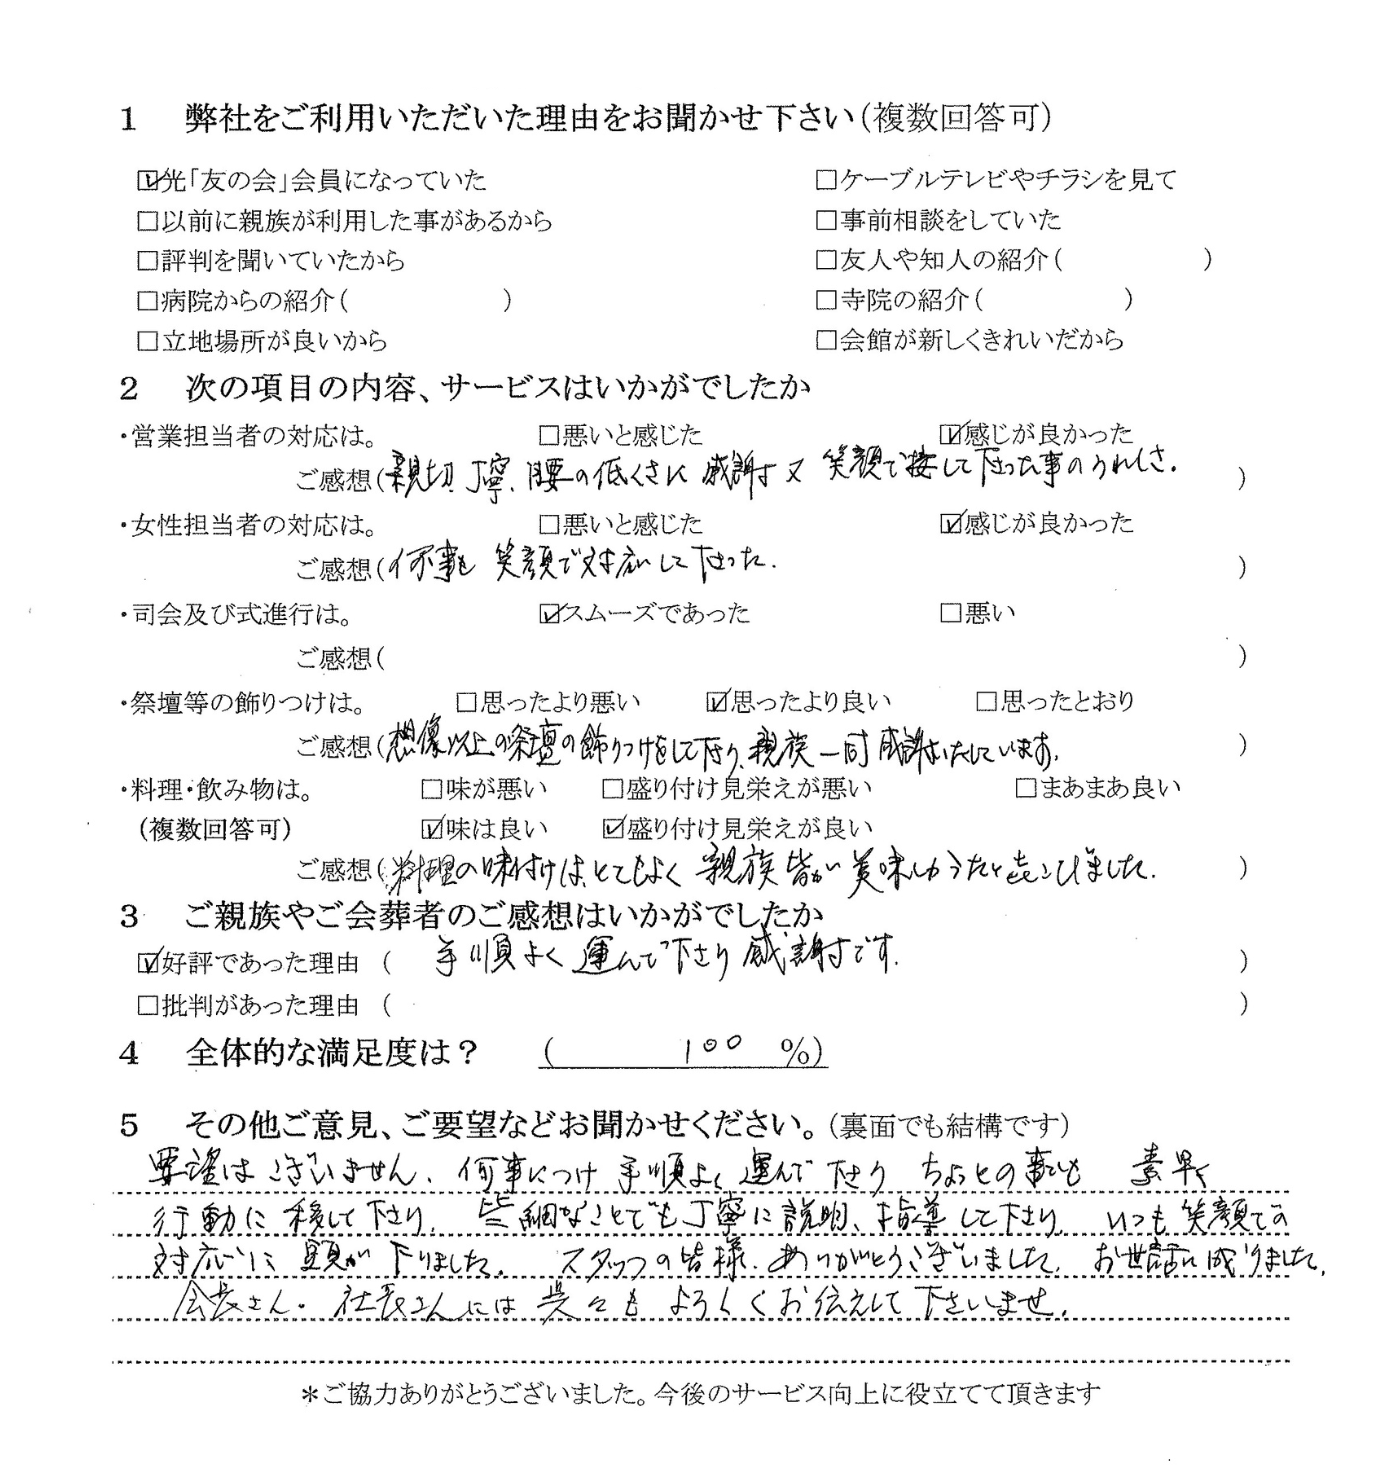 1 弊社をご利用いただいた理由をお聞かせ下さい(複数回答可)
☑光「友の会」会員になっていた □ケーブルテレビやチラシを見て
□以前に親族が利用した事があるから □事前相談をしていた
□評判を聞いていたから □友人や知人の紹介( )
□病院からの紹介( ) □寺院の紹介( )
□立地場所が良いから □会館が新しくきれいだから
2 次の項目の内容、サービスはいかがでしたか
・営業担当者の対応は。 □悪いと感じた ☑感じが良かった
ご感想(親切、丁寧、腰の低くさに 感謝す 又 笑顔で接して下さった事のうれしさ. )
・女性担当者の対応は。 □悪いと感じた ☑感じが良かった
ご感想(何事も 笑顔で対応して下さった. )
・司会及び式進行は。 ☑スムーズであった □悪い
ご感想( )
・祭壇等の飾りつけは。 □思ったより悪い ☑思ったより良い □思ったとおり
ご感想(想像以上の祭壇の飾りつけをして下さり、親族一同感謝いたしています。 )
・料理・飲み物は。 □味が悪い □盛り付け見栄えが悪い □まあまあ良い
(複数回答可) ☑味は良い ☑盛り付け見栄えが良い
ご感想(料理の味付けは、とてもよく 親族皆が 美味しかったと喜こびました. )
3 ご親族やご会葬者のご感想はいかがでしたか
☑好評であった理由 ( 手順よく運んで下さり感謝です. )
□批判があった理由 ( )
4 全体的な満足度は? ( 100 %)
5 その他ご意見、ご要望などお聞かせください。(裏面でも結構です)
要望はございません. 何事につけ手順よく運んで下さり ちょっとの事でも 素早く
行動に移して下さり. 細なことでも丁寧に説明、指導して下さり. いつも笑顔での
対応に 頭が下りました. スタッフの皆様. ありがとうございました. お世話に成りました.
会長さん. 社長さんには 呉々も よろしくお伝えして下さいませ.
＊ご協力ありがとうございました。今後のサービス向上に役立てて頂きます